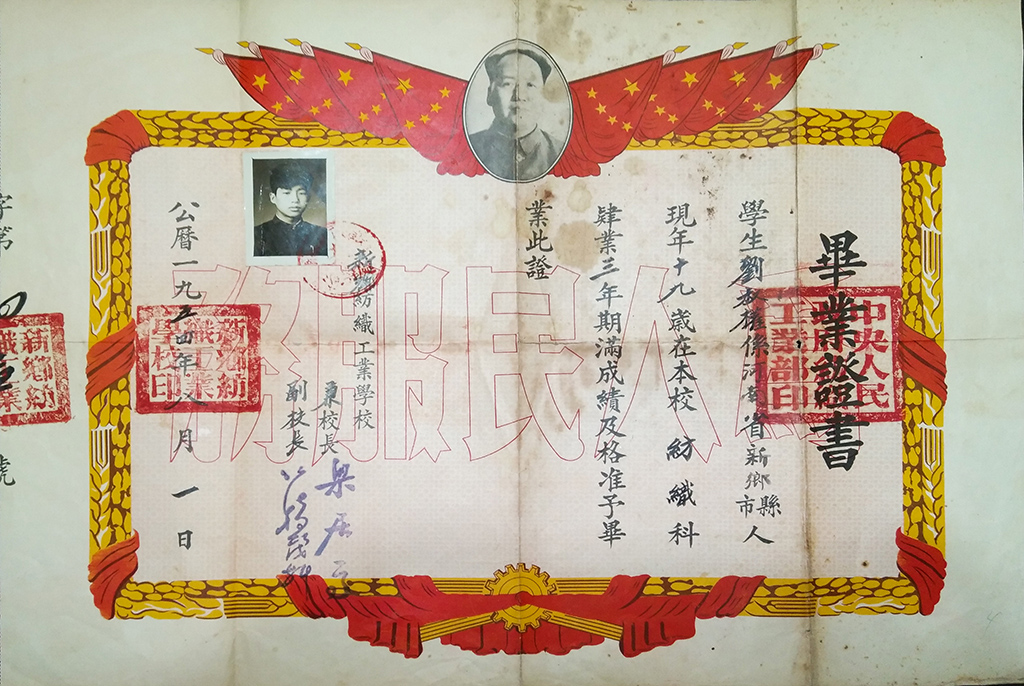 畢業證書
中央人民
工業部印
學生劉權係河南省新鄉縣市人
現年十九歲在本校紡織科
肄業三年期滿成績及格准予畢
業此證
為人民服務
新鄉紡織工業學校
兼校長
副校長
公曆一九五四年八月一日
新鄉紡
織工業
學校印
字第
號